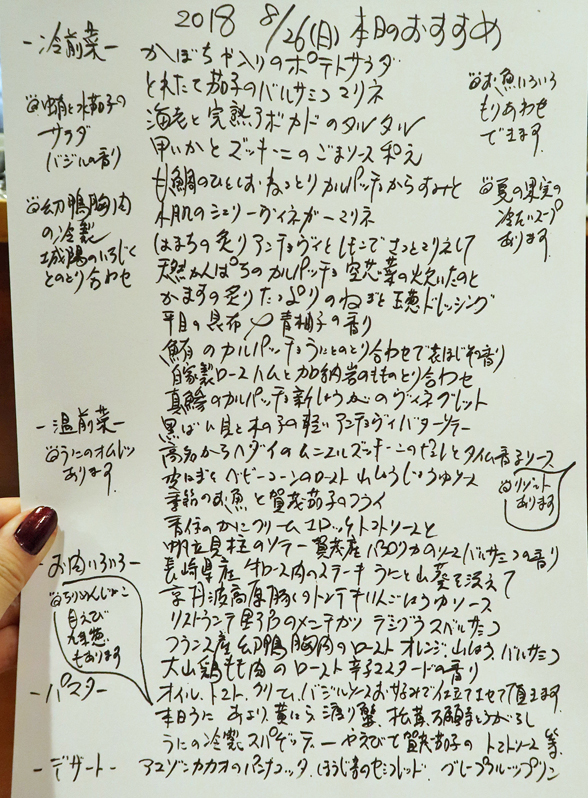 2018 8/26(日) 本日のおすすめ
-冷前菜-
かぼちゃ入りのポテトサラダ
とれたて茄子のバルサミコマリネ
海老と完熟アボカドのタルタル
甲いかとズッキーニのごまソース和え
甘鯛のひとしお ねっとりカルパッチョからすみと
木肌のシェリーヴィネガーマリネ
はまちの炙り アンチョヴィとしそこでさっとマリネして
天然かんぱちのカルパッチョ 空芯菜の炊いたのと
かますの炙り たっぷりのねぎと玉葱ドレッシング
平目の昆布〆 青柚子の香り
鮪のカルパッチョ うにとのとり合わせで 穂じその香り
自家製ローストハムと加納岩のももとり合わせ
真鯵のカルパッチョ 新しょうがのヴィネグレット
蛸と水茄子の
サラダ
バジルの香り
幼鴨胸肉
の冷製
城陽のいちじく
とのとり合わせ
お魚いろいろ
もりあわせ
できます
夏の果実の
冷たいスープ
あります
-温前菜-
黒ばい貝と木の子の軽いアンチョヴィバターソテー
高知からヘダイのムニエル ズッキーニのせとタイム香るソース
ベビーコーンのロースト 山しょうじょうゆソース
季節のお魚と賀茂茄子のフライ
香住のかにクリームコロッケ トマトソースと
帆立貝柱のソテー 賀茂産パプリカのソース バルサミコの香り
うにのオムレツ
あります
リゾット
あります
-お肉いろいろ-
長崎県産 牛ロース肉のステーキ うにと山葵を添えて
京丹波高原豚のトンテキ りんごしょうゆソース
リストランテ野呂のメンチカツ デミグラスバルサミコ
フランス産幼鴨胸肉のロースト オレンジ、山しょう、バルサミコ
大山鶏もも肉のロースト 辛子マスタードの香り
ちりめんじゃこ
白えび
九条葱
もあります
-パスタ-
オイル、トマト、クリーム、バジルソースお好みで仕立てさせて頂きます
本日うに あさり、黄にら、渡り蟹、松茸、万願寺とうがらし
うにの冷製スパゲッティーや えびと賀茂茄子のトマトソース 等
-デザート-
アマゾンカカオのパンナコッタ、ほうじ茶のセミフレッド、グレープフルーツプリン